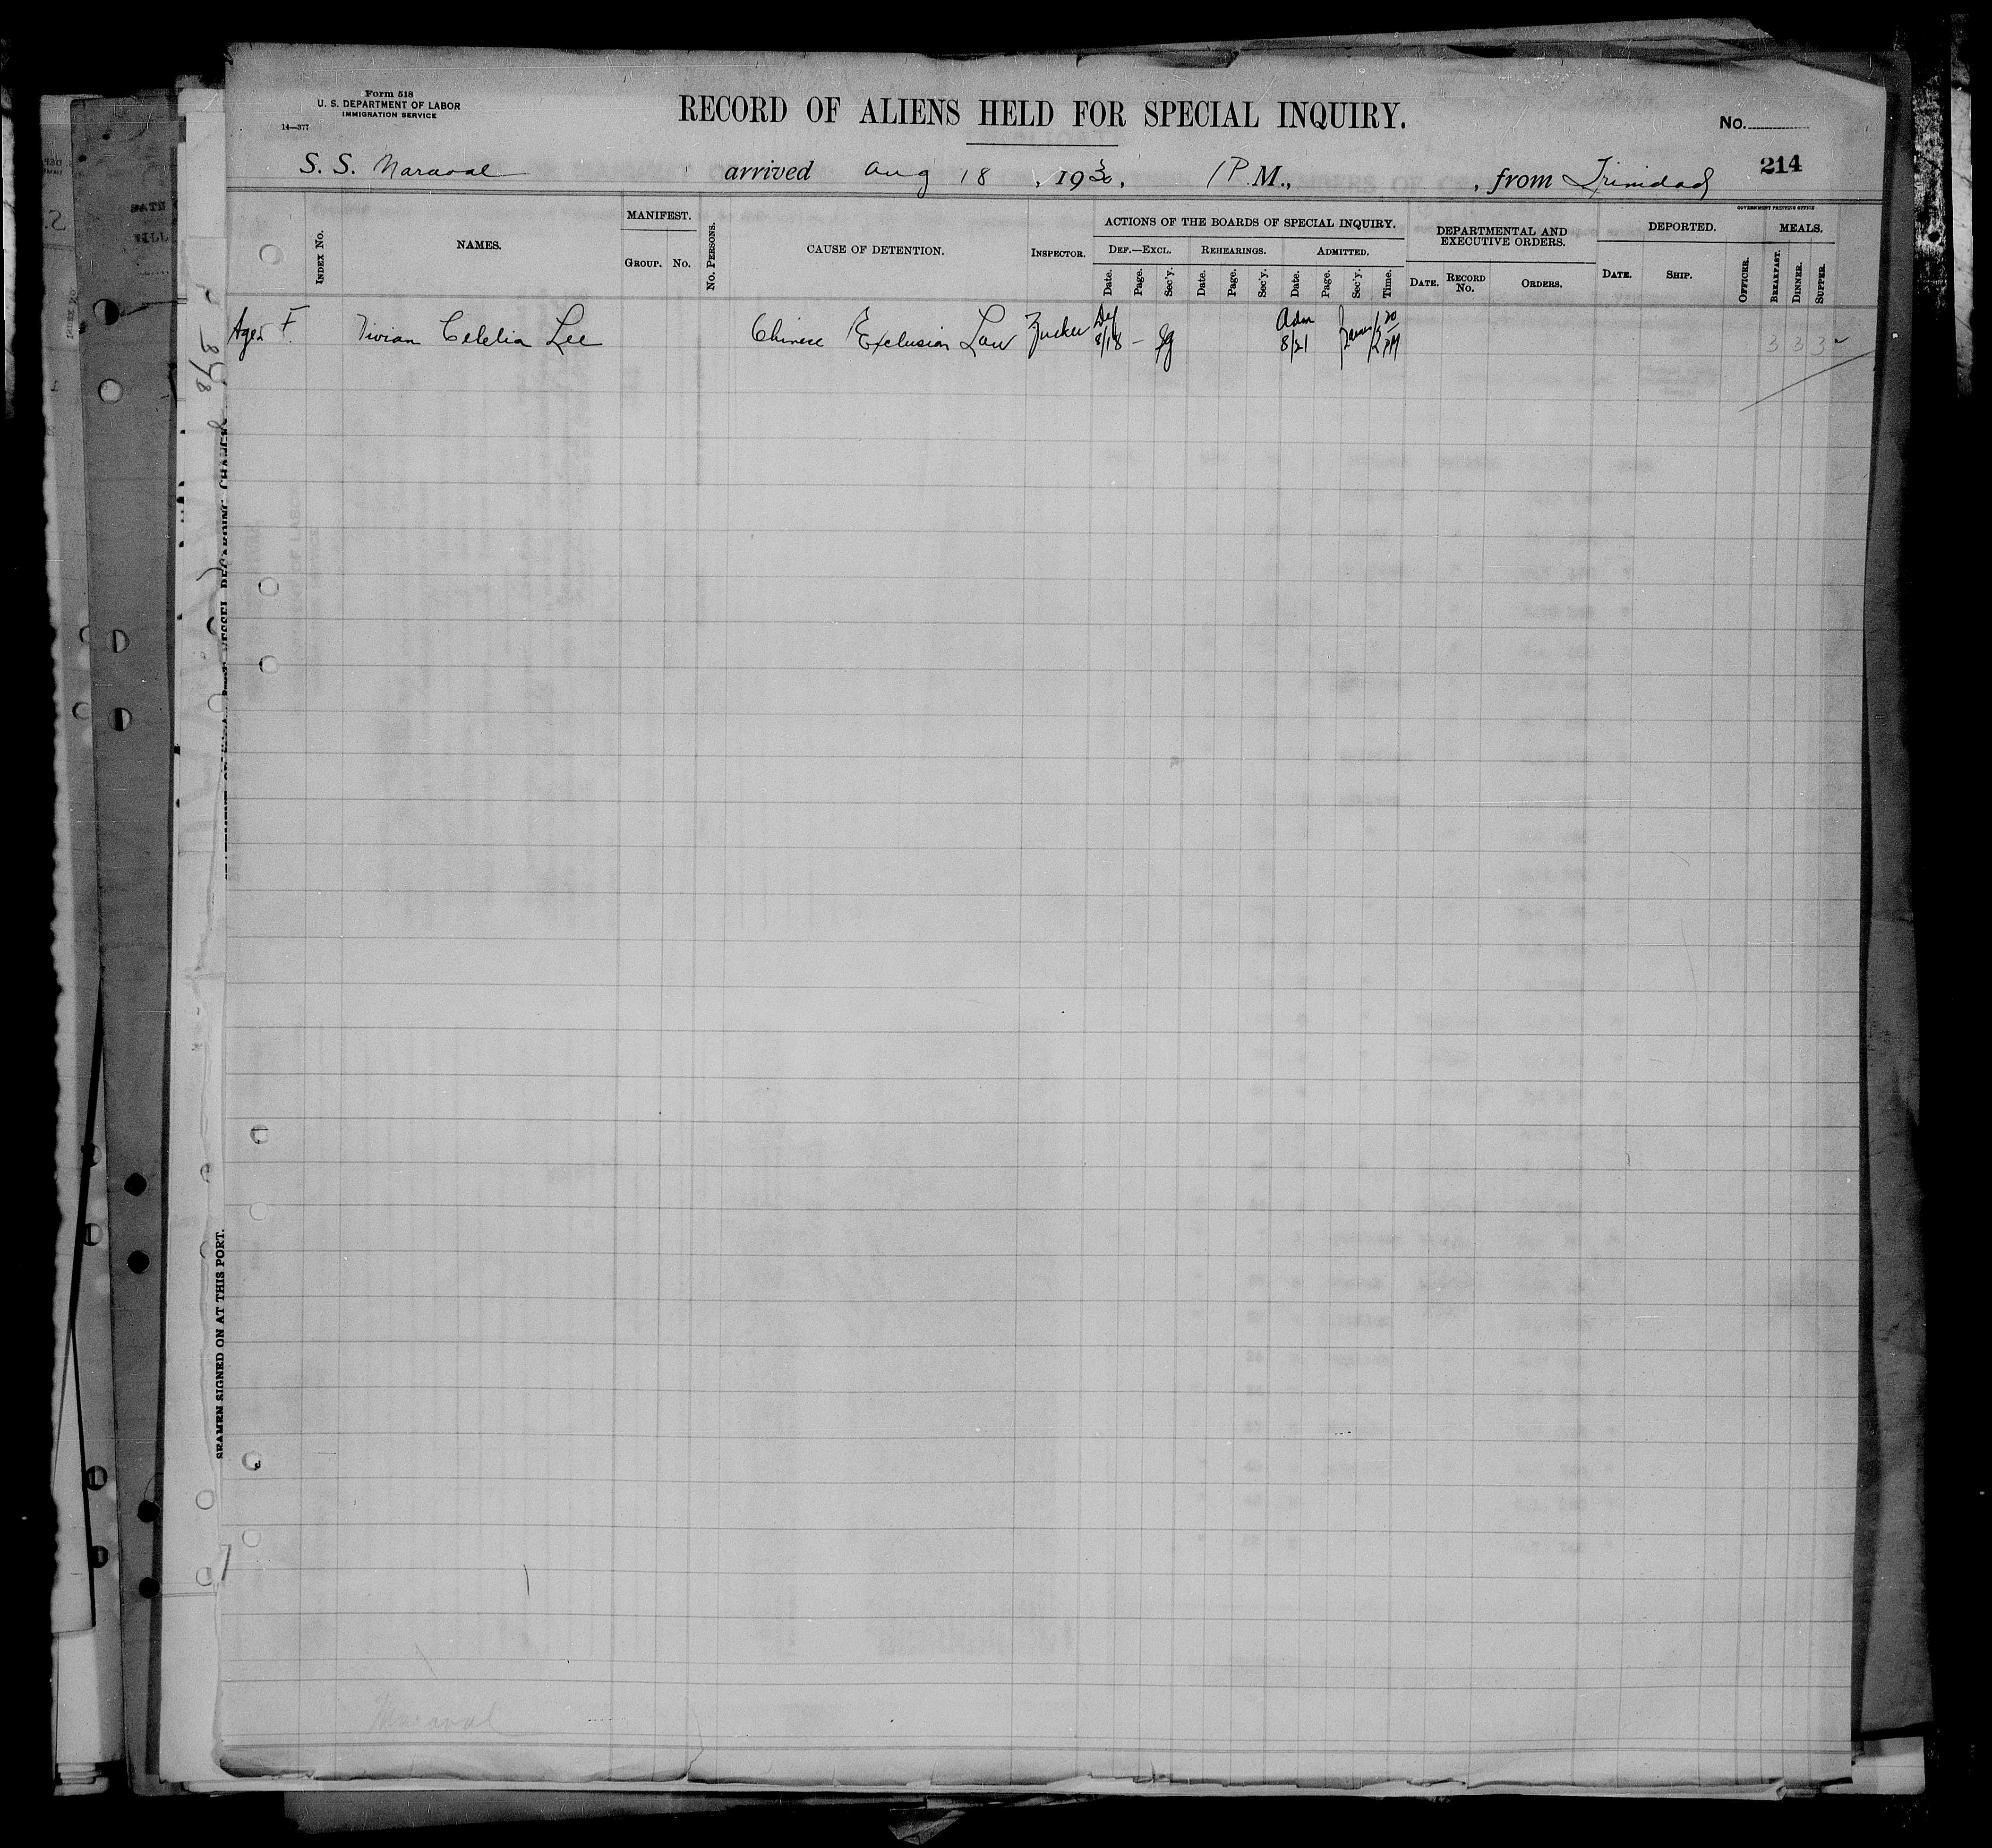 Form 518
U. S. DEPARTMENT OF LABOR
IMMIGRATION SERVICE
14—377
RECORD OF ALIENS HELD FOR SPECIAL INQUIRY.
No.
214
S. S. Maraval arrived Aug 18, 1930, 1 P. M., , from Trinidad
GOVERNMENT PRINTING OFFICE
INDEX No.
NAMES.
MANIFEST.
GROUP. No.
No. PERSONS.
CAUSE OF DETENTION.
INSPECTOR.
ACTIONS OF THE BOARDS OF SPECIAL INQUIRY.
DEF.—EXCL. REHEARINGS. ADMITTED.
Date. Page. Sec'y. Date. Page. Sec'y. Date. Page. Sec'y. Time.
DEPARTMENTAL AND
EXECUTIVE ORDERS.
DATE. RECORD No. ORDERS.
DEPORTED.
DATE. SHIP. OFFICER.
MEALS.
BREAKFAST. DINNER. SUPPER.
F. Vivian Celelia Lee Chinese Exclusion Law Zucker Def 8/18 — Adm 8/21 PM 3 3 3
SEAMEN SIGNED ON AT THIS PORT.
Maraval